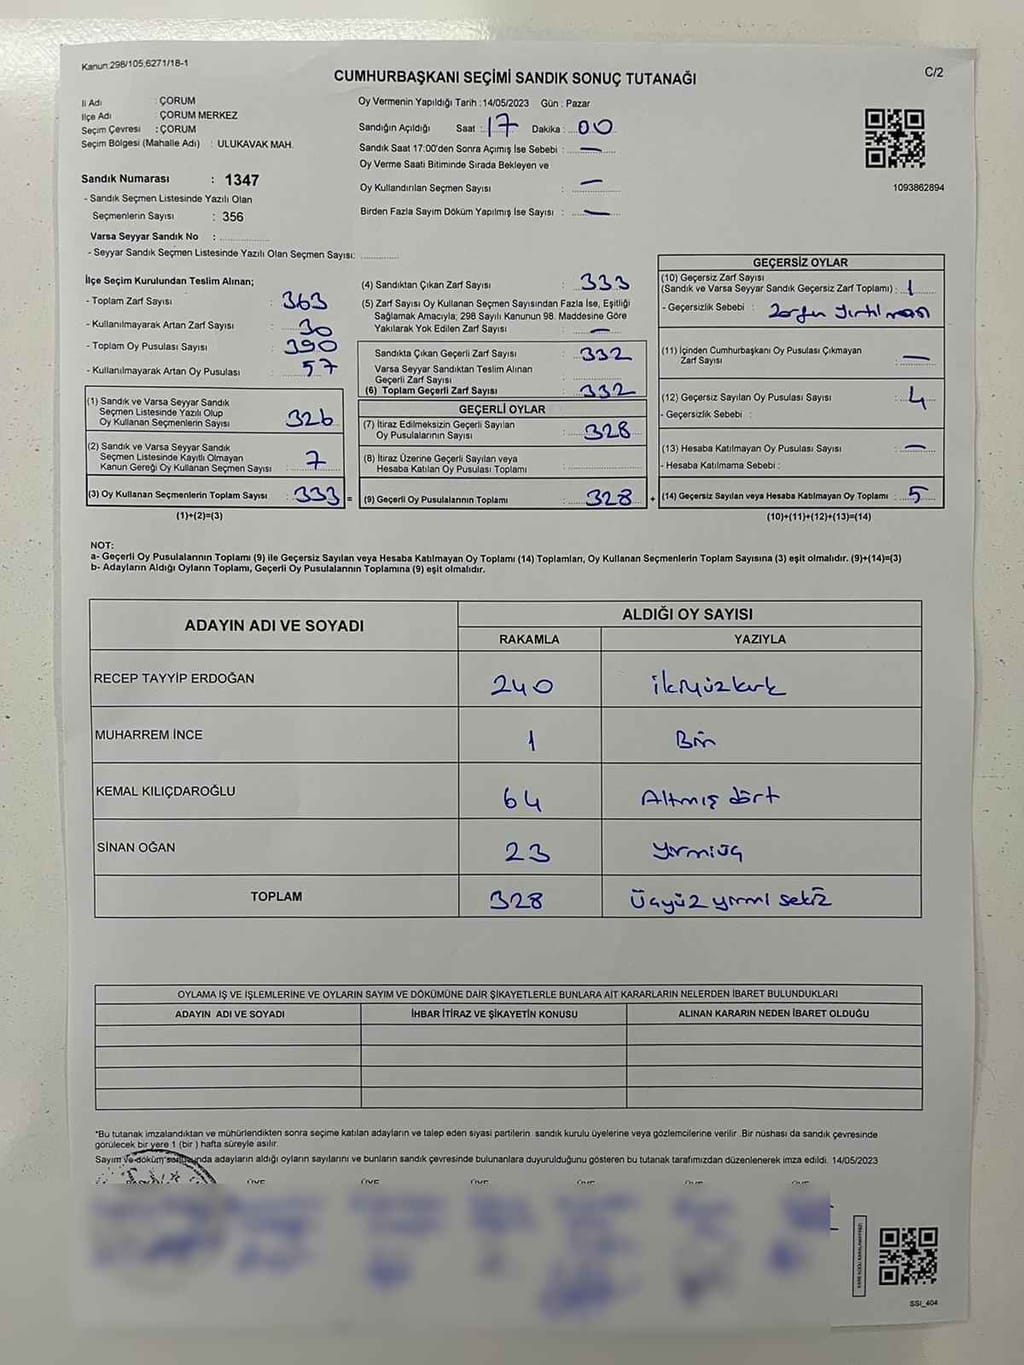 Kanun:298/105;6271/18-1
CUMHURBAŞKANI SEÇİMİ SANDIK SONUÇ TUTANAĞI
C/2
İl Adı : ÇORUM
İlçe Adı : ÇORUM MERKEZ
Seçim Çevresi : ÇORUM
Seçim Bölgesi (Mahalle Adı) : ULUKAVAK MAH.
Sandık Numarası : 1347
- Sandık Seçmen Listesinde Yazılı Olan
Seçmenlerin Sayısı : 356
Varsa Seyyar Sandık No :
- Seyyar Sandık Seçmen Listesinde Yazılı Olan Seçmen Sayısı:
Oy Vermenin Yapıldığı Tarih : 14/05/2023 Gün : Pazar
Sandığın Açıldığı Saat : 17 Dakika : 00
Sandık Saat 17:00'den Sonra Açımış İse Sebebi : —
Oy Verme Saati Bitiminde Sırada Bekleyen ve
Oy Kullandırılan Seçmen Sayısı : —
Birden Fazla Sayım Döküm Yapılmış İse Sayısı : —
1093862894
İlçe Seçim Kurulundan Teslim Alınan;
- Toplam Zarf Sayısı : 363
- Kullanılmayarak Artan Zarf Sayısı : 30
- Toplam Oy Pusulası Sayısı : 390
- Kullanılmayarak Artan Oy Pusulası : 57
(1) Sandık ve Varsa Seyyar Sandık
Seçmen Listesinde Yazılı Olup
Oy Kullanan Seçmenlerin Sayısı : 326
(2) Sandık ve Varsa Seyyar Sandık
Seçmen Listesinde Kayıtlı Olmayan
Kanun Gereği Oy Kullanan Seçmen Sayısı : 7
(3) Oy Kullanan Seçmenlerin Toplam Sayısı : 333 =
(1)+(2)=(3)
(4) Sandıktan Çıkan Zarf Sayısı : 333
(5) Zarf Sayısı Oy Kullanan Seçmen Sayısından Fazla İse, Eşitliği
Sağlamak Amacıyla; 298 Sayılı Kanunun 98. Maddesine Göre
Yakılarak Yok Edilen Zarf Sayısı : —
Sandıkta Çıkan Geçerli Zarf Sayısı : 332
Varsa Seyyar Sandıktan Teslim Alınan
Geçerli Zarf Sayısı :
(6) Toplam Geçerli Zarf Sayısı : 332
GEÇERLİ OYLAR
(7) İtiraz Edilmeksizin Geçerli Sayılan
Oy Pusulalarının Sayısı : 328
(8) İtiraz Üzerine Geçerli Sayılan veya
Hesaba Katılan Oy Pusulası Toplamı :
(9) Geçerli Oy Pusulalarının Toplamı : 328 +
GEÇERSİZ OYLAR
(10) Geçersiz Zarf Sayısı
(Sandık ve Varsa Seyyar Sandık Geçersiz Zarf Toplamı) : 1
- Geçersizlik Sebebi : Zarfın Yırtılması
(11) İçinden Cumhurbaşkanı Oy Pusulası Çıkmayan
Zarf Sayısı : —
(12) Geçersiz Sayılan Oy Pusulası Sayısı : 4
- Geçersizlik Sebebi :
(13) Hesaba Katılmayan Oy Pusulası Sayısı : —
- Hesaba Katılmama Sebebi :
(14) Geçersiz Sayılan veya Hesaba Katılmayan Oy Toplamı : 5
(10)+(11)+(12)+(13)=(14)
NOT:
a- Geçerli Oy Pusulalarının Toplamı (9) ile Geçersiz Sayılan veya Hesaba Katılmayan Oy Toplamı (14) Toplamları, Oy Kullanan Seçmenlerin Toplam Sayısına (3) eşit olmalıdır. (9)+(14)=(3)
b- Adayların Aldığı Oyların Toplamı, Geçerli Oy Pusulalarının Toplamına (9) eşit olmalıdır.
ADAYIN ADI VE SOYADI
ALDIĞI OY SAYISI
RAKAMLA YAZIYLA
RECEP TAYYİP ERDOĞAN 240 ikiyüzkırk
MUHARREM İNCE 1 Bir
KEMAL KILIÇDAROĞLU 64 Altmış dört
SİNAN OĞAN 23 Yirmiüç
TOPLAM 328 Üçyüz yirmi sekiz
OYLAMA İŞ VE İŞLEMLERİNE VE OYLARIN SAYIM VE DÖKÜMÜNE DAİR ŞİKAYETLERLE BUNLARA AİT KARARLARIN NELERDEN İBARET BULUNDUKLARI
ADAYIN ADI VE SOYADI İHBAR İTİRAZ VE ŞİKAYETİN KONUSU ALINAN KARARIN NEDEN İBARET OLDUĞU
*Bu tutanak imzalandıktan ve mühürlendikten sonra seçime katılan adayların ve talep eden siyasi partilerin sandık kurulu üyelerine veya gözlemcilerine verilir .Bir nüshası da sandık çevresinde
görülecek bir yere 1 (bir ) hafta süreyle asılır.
Sayım ve döküm sonucunda adayların aldığı oyların sayılarını ve bunların sandık çevresinde bulunanlara duyurulduğunu gösteren bu tutanak tarafımızdan düzenlenerek imza edildi. 14/05/2023
ÜYE ÜYE ÜYE ÜYE ÜYE ÜYE
SSI_404